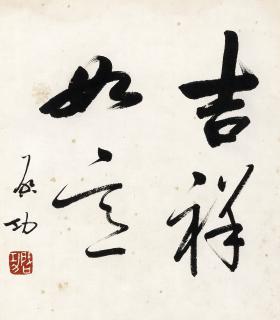 吉祥
如意
启功